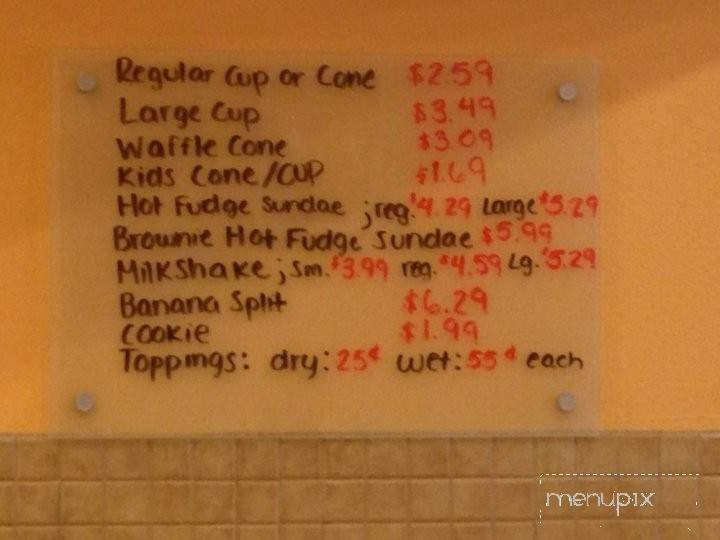 Regular Cup or Cone $2.59
Large Cup $3.49
Waffle Cone $3.09
Kids Cone/CUP $1.69
Hot Fudge Sundae ; reg. $4.29 Large $5.29
Brownie Hot Fudge Sundae $5.99
Milkshake ; Sm. $3.99 reg. $4.59 Lg. $5.29
Banana Split $6.29
Cookie $1.99
Toppings: dry: 25¢ wet: 55¢ each
menupix